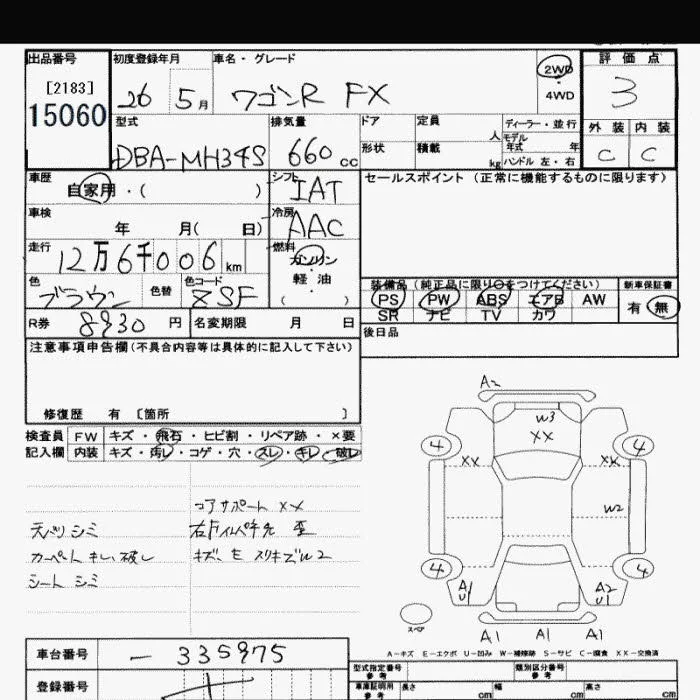 出品番号 初度登録年月 車名・グレード 2WD ・ 4WD 評価点
[2183]
15060
26 5月 ワゴンR FX 3
型式 排気量 ドア 定員 人 ディーラー・並行 外装 内装
モデル年式 年
DBA-MH34S 660cc 形状 積載 kg ハンドル 左・右 C C
車歴 自家用・( ) シフト IAT セールスポイント(正常に機能するものに限ります)
車検 年 月( 日) 冷房 AAC
走行 12万6千006km 燃料 ガソリン ・ 軽油 ( )
色 ブラウン 色替 色コード ZSF
装備品(純正品に限り○をつけてください) 新車保証書
PS PW ABS エアB AW 有 無
SR ナビ TV カワ
R券 8930円 名変期限 月 日 後日品
注意事項申告欄(不具合内容等は具体的に記入して下さい)
修復歴 有 〔箇所 〕
検査員 FW キズ・飛石・ヒビ割・リペア跡・×要
記入欄 内装 キズ・汚レ・コゲ・穴・スレ・キレ・破レ
コアサポート XX
天バリ シミ
カーペット キレ、破レ
シート シミ
A2
W3
XX
4 4
XX XX
W2
4 4
A1 U1 A2 U1
スペア
A1 A1 A1
A-キズ E-エクボ U-凹み W-補修跡 S-サビ C-腐食 XX-交換済
車台番号 - 335975
登録番号
型式指定番号 参考 類別区分番号 参考
車庫証明用 参考 長さ cm 幅 cm 高さ cm